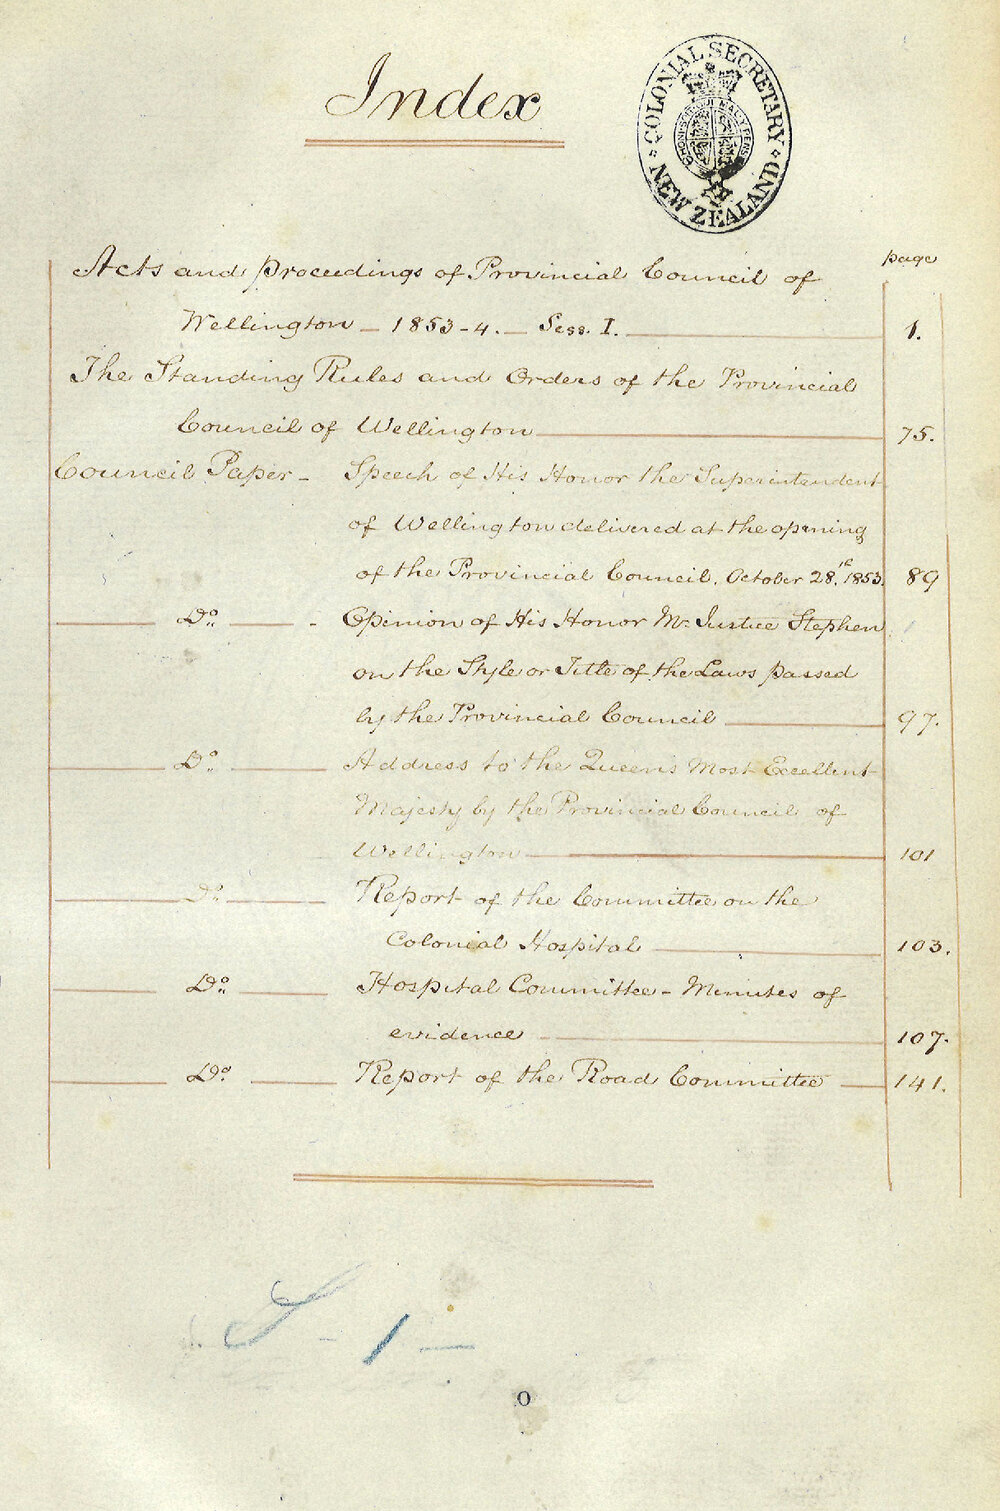 Index
COLONIAL SECRETARY
NEW ZEALAND
page
Acts and proceedings of Provincial Council of
Wellington – 1853-4. – Sess. I. 1.
The Standing Rules and Orders of the Provincial
Council of Wellington 75.
Council Paper – Speech of His Honor the Superintendent
of Wellington delivered at the opening
of the Provincial Council. October 28th. 1853. 89
Do. – Opinion of His Honor Mr. Justice Stephen
on the Style or Title of the Laws passed
by the Provincial Council 97.
Do. Address to the Queen's Most Excellent
Majesty by the Provincial Council of
Wellington 101
Do. Report of the Committee on the
Colonial Hospital 103.
Do. Hospital Committee – Minutes of
evidence 107.
Do. Report of the Road Committee 141.
- 1 -
O